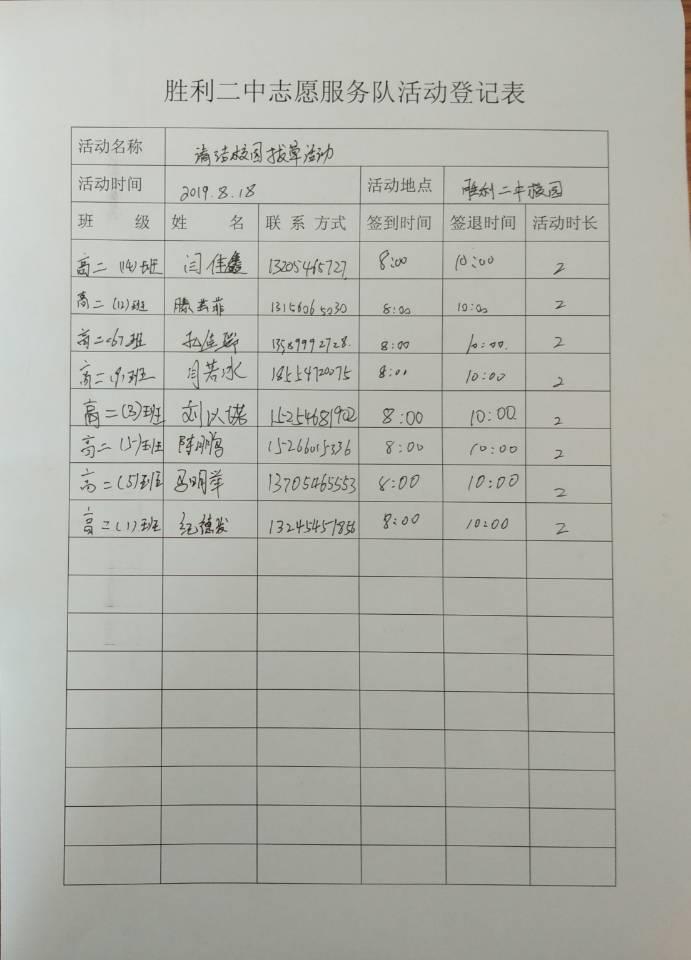 胜利二中志愿服务队活动登记表
活动名称 清洁校园拔草活动
活动时间 2019.8.18 活动地点 胜利二中校园
班 级 姓 名 联系方式 签到时间 签退时间 活动时长
高二(14)班 闫佳鑫 13205465727 8:00 10:00 2
高二(12)班 滕芸菲 13156065030 8:00 10:00 2
高二(6)班 13589992728 8:00 10:00 2
高二(9)班 闫若冰 18554720075 8:00 10:00 2
高二(3)班 刘以诺 15254681902 8:00 10:00 2
高二(5)班 陈鹏 15266015336 8:00 10:00 2
高二(5)班 马明举 13705465553 8:00 10:00 2
高二(1)班 纪德发 13245451856 8:00 10:00 2